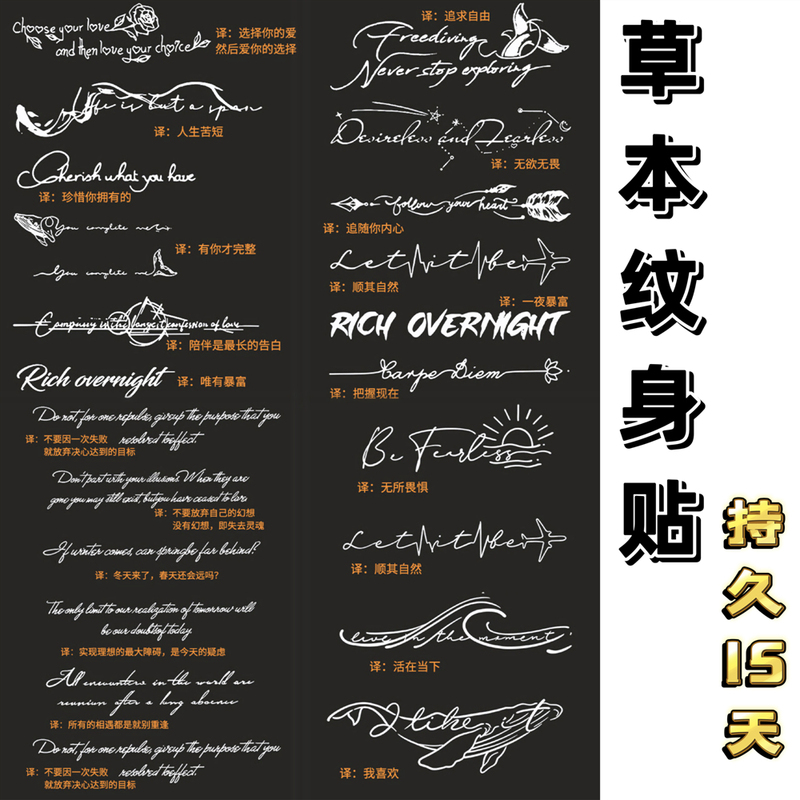 Choose your love
and then love your cho?ce
译：选择你的爱
然后爱你的选择
Life is but a span
译：人生苦短
Cherish what you have
译：珍惜你拥有的
You complete me
译：有你才完整
You complete me
Company is the longest confession of love
译：陪伴是最长的告白
Rich overnight
译：唯有暴富
Do not, for one repulse, giveup the purpose that you
resolved toeffect
译：不要因一次失败
就放弃决心达到的目标
Don't part with your illusions. When they are
gone you may still exist, but you have ceased to live
译：不要放弃自己的幻想
没有幻想，即失去灵魂
If winter comes, can spring be far behind?
译：冬天来了，春天还会远吗？
The only limit to our realization of tomorrow will
be our doubts of today.
译：实现理想的最大障碍，是今天的疑虑
All encounters in the world are
reunion after a long absence
译：所有的相遇都是就别重逢
Do not, for one repulse, giveup the purpose that you
resolved toeffect
译：不要因一次失败
就放弃决心达到的目标
译：追求自由
Freediving
Never stop exploring
Desireless and Fearless
译：无欲无畏
follow your heart
译：追随你内心
Let it be
译：顺其自然
译：一夜暴富
RICH OVERNIGHT
Carpe Diem
译：把握现在
Be Fearless
译：无所畏惧
Let it be
译：顺其自然
live in the moment
译：活在当下
I like
译：我喜欢
草本纹身贴
持久15天